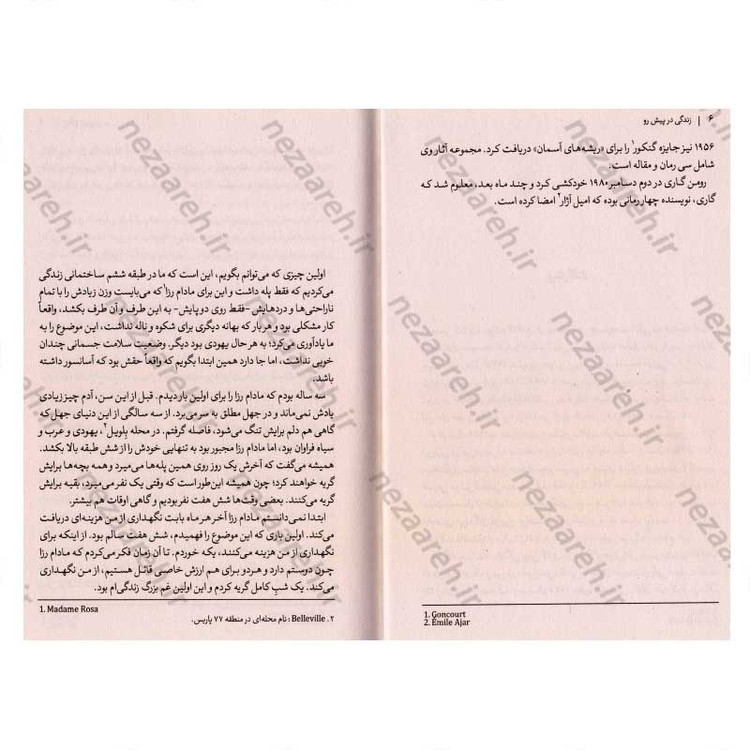 ۶ | زندگی در پیش رو
۱۹۵۶ نیز جایزه گنکور۱ را برای «ریشه‌های آسمان» دریافت کرد. مجموعه آثار وی
شامل سی رمان و مقاله است.
رومن گاری در دوم دسامبر ۱۹۸۰ خودکشی کرد و چند ماه بعد، معلوم شد که
گاری، نویسنده چهار رمانی بوده که امیل آژار۲ امضا کرده است.
1. Goncourt
2. Émile Ajar
اولین چیزی که می‌توانم بگویم، این است که ما در طبقه ششم ساختمانی زندگی
می‌کردیم که فقط پله داشت و این برای مادام رزا۱ که می‌بایست وزن زیادش را با تمام
ناراحتی‌ها و دردهایش -فقط روی دو پایش- به این طرف و آن طرف بکشد، واقعاً
کار مشکلی بود و هر بار که بهانه دیگری برای شکوه و ناله نداشت، این موضوع را به
ما یادآوری می‌کرد؛ به هر حال یهودی بود دیگر. وضعیت سلامت جسمانی چندان
خوبی نداشت، اما جا دارد همین ابتدا بگویم که واقعاً حقش بود که آسانسور داشته
باشد.
سه ساله بودم که مادام رزا را برای اولین بار دیدم. قبل از این سن، آدم چیز زیادی
یادش نمی‌ماند و در جهل مطلق به سر می‌برد. از سه سالگی از این دنیای جهل که
گاهی هم دلم برایش تنگ می‌شود، فاصله گرفتم. در محله بلویل۲، یهودی و عرب و
سیاه فراوان بود، اما مادام رزا مجبور بود به تنهایی خودش را از شش طبقه بالا بکشد.
همیشه می‌گفت که آخرش یک روز روی همین پله‌ها می‌میرد و همه بچه‌ها برایش
گریه خواهند کرد؛ چون همیشه این‌طور است که وقتی یک نفر می‌میرد، بقیه برایش
گریه می‌کنند. بعضی وقت‌ها شش هفت نفر بودیم و گاهی اوقات هم بیشتر.
ابتدا نمی‌دانستم مادام رزا آخر هر ماه بابت نگهداری از من هزینه‌ای دریافت
می‌کند. اولین باری که این موضوع را فهمیدم، شش هفت سالم بود. از اینکه برای
نگهداری از من هزینه می‌کنند، یکه خوردم. تا آن زمان فکر می‌کردم که مادام رزا
چون دوستم دارد و هر دو برای هم ارزش خاصی قائل هستیم، از من نگهداری
می‌کند. یک شبِ کامل گریه کردم و این اولین غم بزرگ زندگی‌ام بود.
1. Madame Rosa
۲. Belleville : نام محله‌ای در منطقه ۷۷ پاریس.
nezaareh.ir